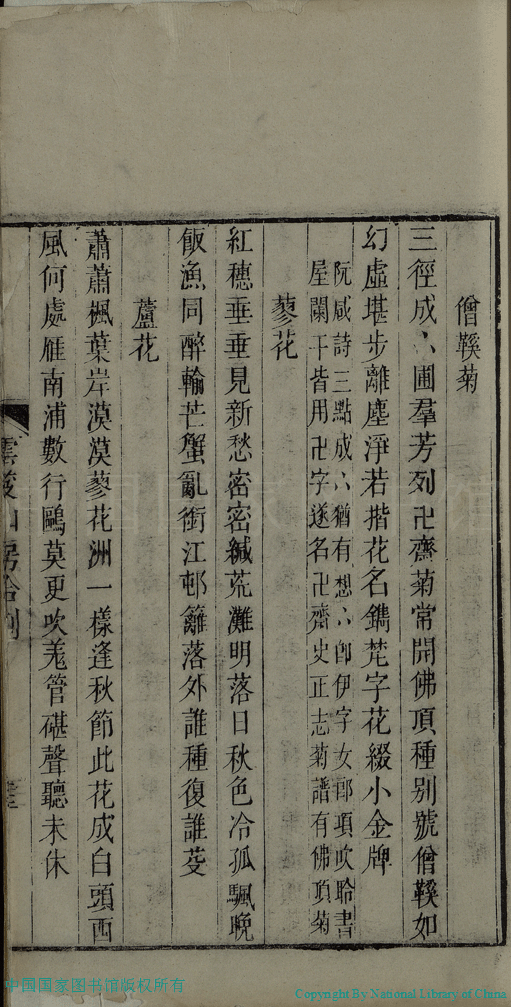 僧鞵菊
三徑成∴圃羣芳列卍齋菊常開佛頂種别號僧鞵如
幻虛堪步離塵淨若揩花名鐫梵字花綴小金牌
阮咸詩三點成∴猶有想∴卽伊字女郎項吹聆書
屋闌干皆用卍字遂名卍齋史正志菊譜有佛頂菊
蓼花
紅穗垂垂見新愁密密緘荒灘明落日秋色冷孤颿晚
飯漁同醉輸芒蟹亂銜江邨籬落外誰種復誰芟
蘆花
蕭蕭楓葉岸漠漠蓼花洲一樣逢秋節此花成白頭西
風何處雁南浦數行鷗莫更吹羗管碪聲聽未休
山房合刻
中国国家图书馆版权所有
Copyright By National Library of China